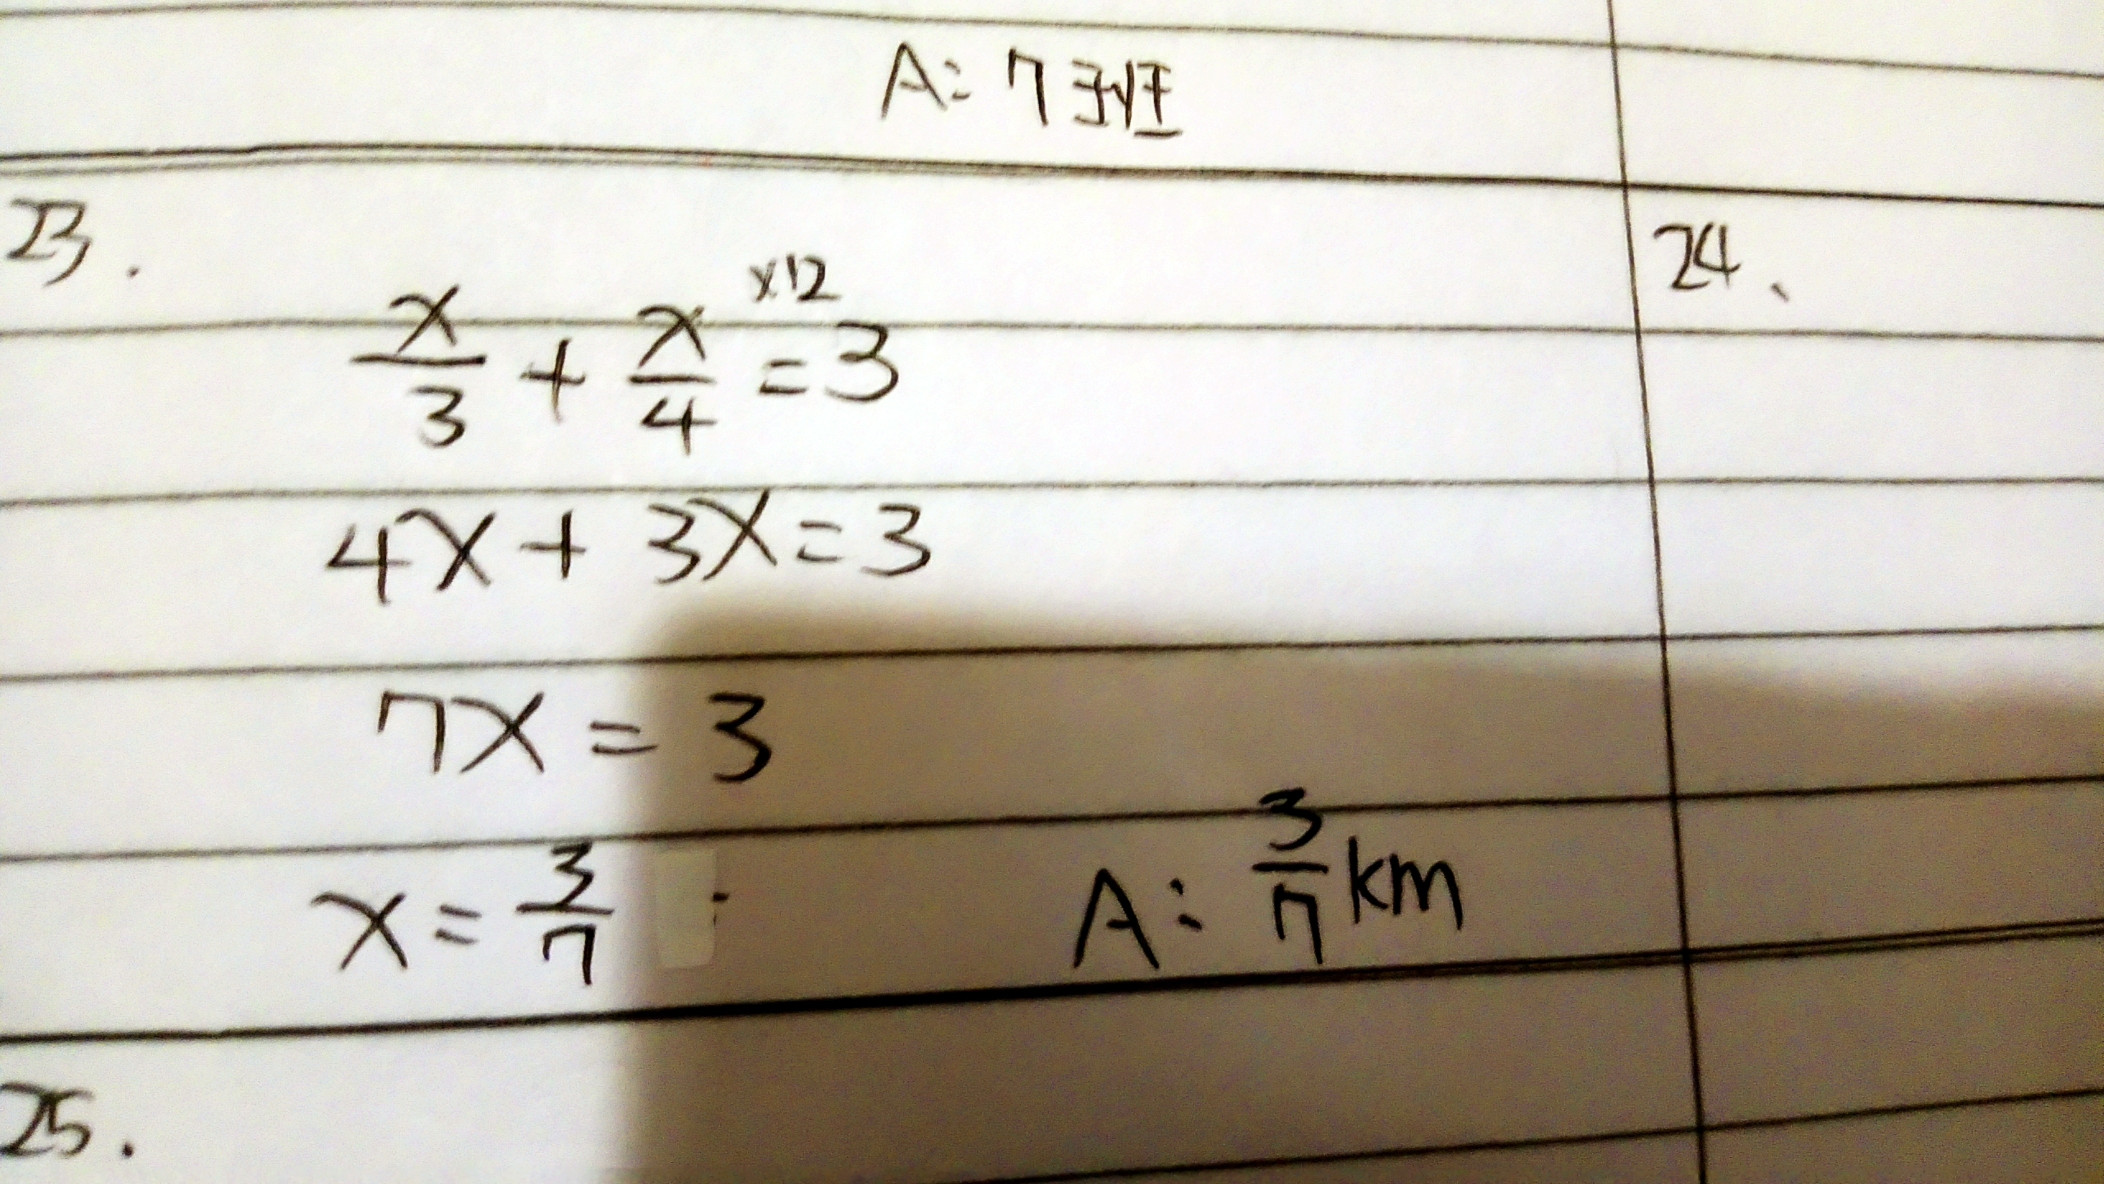 A: 7班
23.
x/3 + x/4 = 3 x12
4x + 3x = 3
7x = 3
x = 3/7
A: 3/7 km
24、
25.